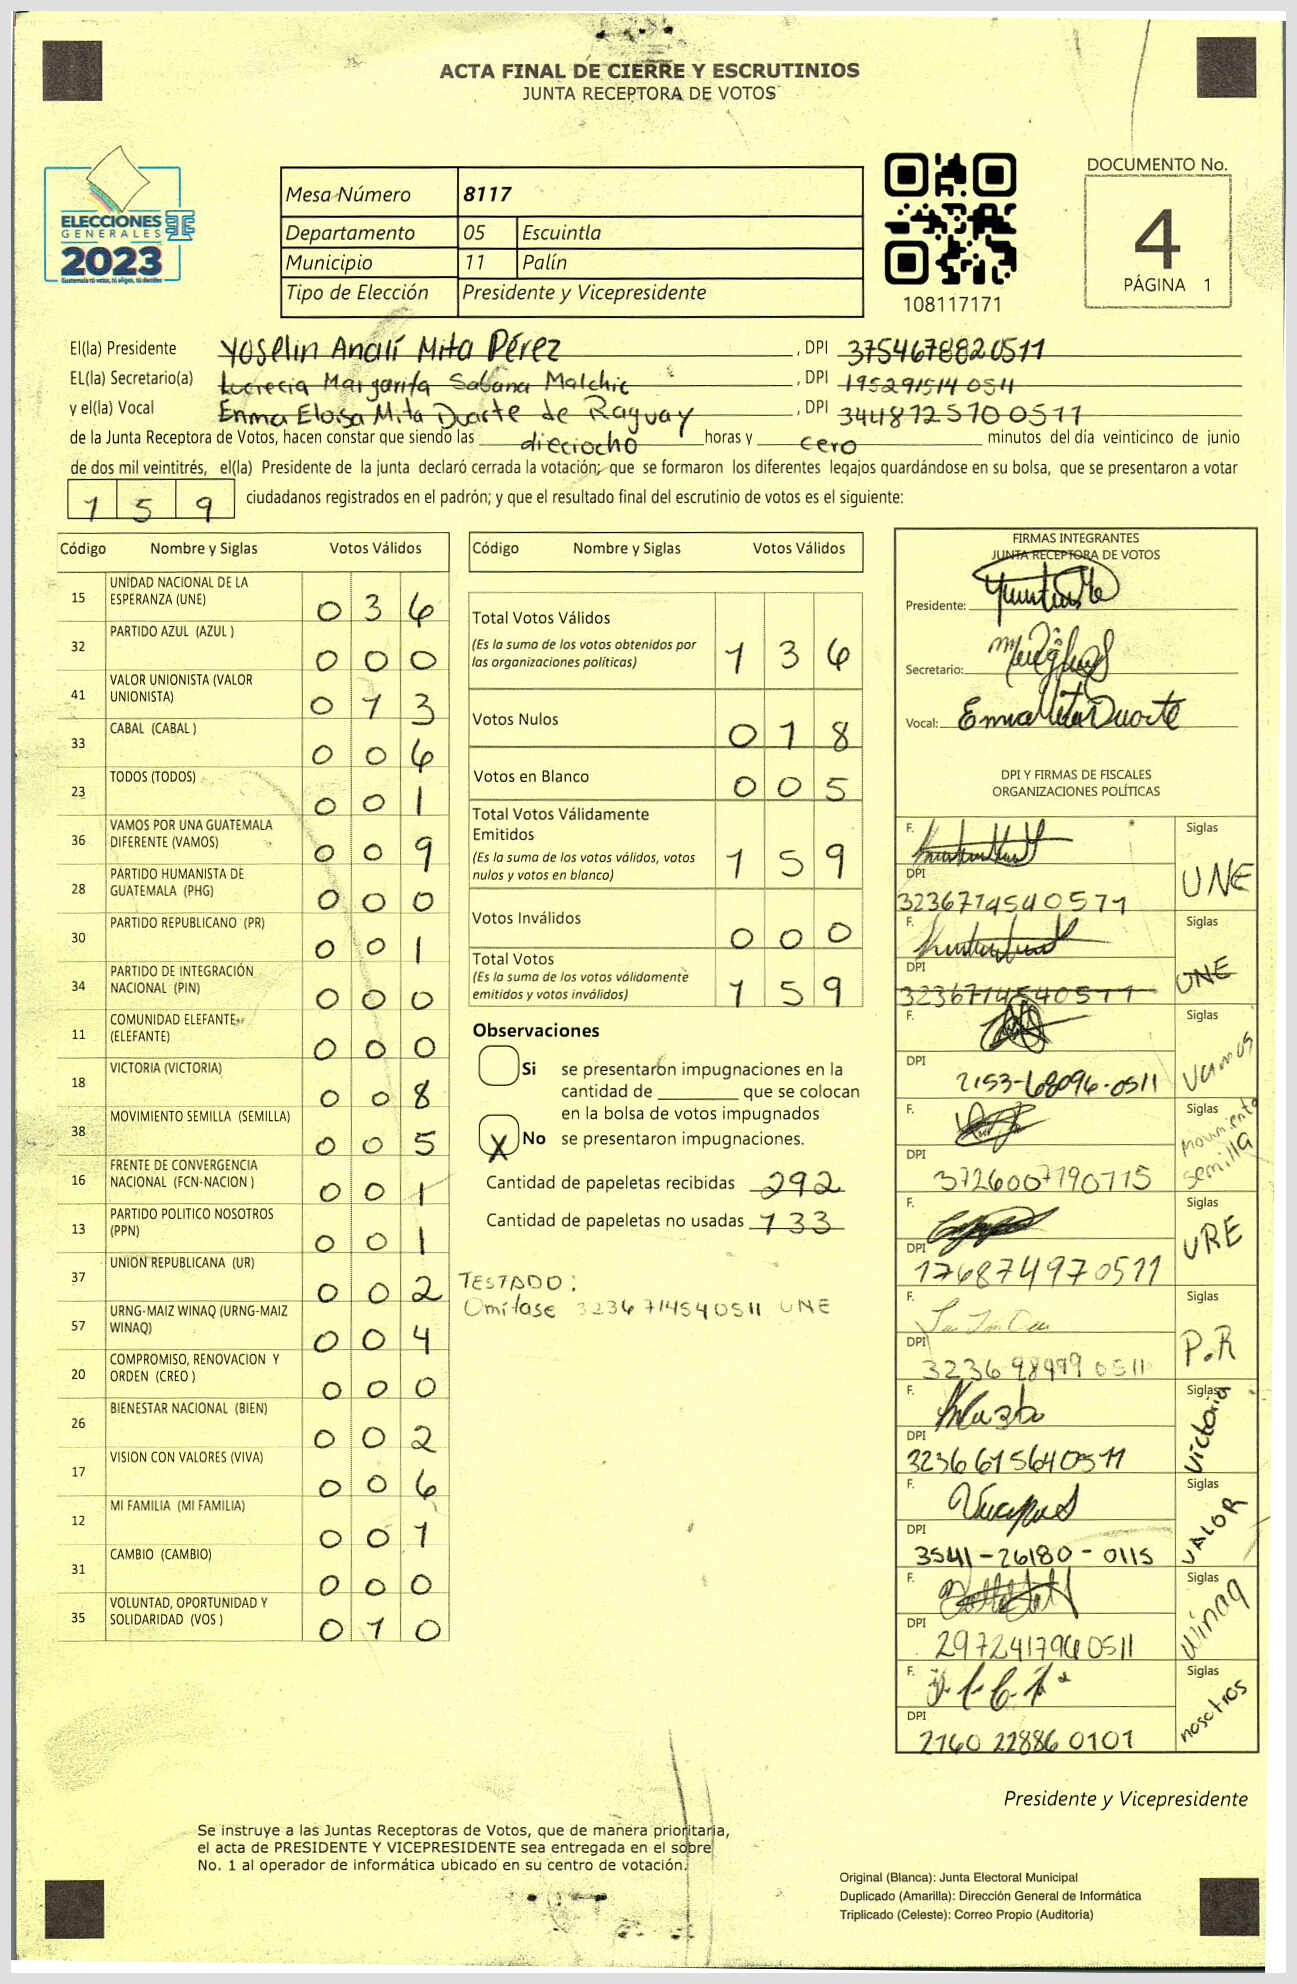 ACTA FINAL DE CIERRE Y ESCRUTINIOS
JUNTA RECEPTORA DE VOTOS
ELECCIONES
GENERALES
2023
Guatemala tú votas, tú eliges, tú decides
Mesa Número 8117
Departamento 05 Escuintla
Municipio 11 Palín
Tipo de Elección Presidente y Vicepresidente
108117171
DOCUMENTO No.
4
PÁGINA 1
El(la) Presidente Yoselin Analí Mita Pérez , DPI 3754678820511
EL(la) Secretario(a) Lucrecia Margarita Sabana Malchic , DPI 195291514 0511
y el(la) Vocal Enma Eloisa Mita Duarte de Raguay , DPI 3448725700511
de la Junta Receptora de Votos, hacen constar que siendo las dieciocho horas y cero minutos del día veinticinco de junio
de dos mil veintitrés, el(la) Presidente de la junta declaró cerrada la votación; que se formaron los diferentes legajos guardándose en su bolsa, que se presentaron a votar
159 ciudadanos registrados en el padrón; y que el resultado final del escrutinio de votos es el siguiente:
Código Nombre y Siglas Votos Válidos
15 UNIDAD NACIONAL DE LA ESPERANZA (UNE) 036
32 PARTIDO AZUL (AZUL ) 000
41 VALOR UNIONISTA (VALOR UNIONISTA) 013
33 CABAL (CABAL ) 006
23 TODOS (TODOS) 001
36 VAMOS POR UNA GUATEMALA DIFERENTE (VAMOS) 009
28 PARTIDO HUMANISTA DE GUATEMALA (PHG) 000
30 PARTIDO REPUBLICANO (PR) 001
34 PARTIDO DE INTEGRACIÓN NACIONAL (PIN) 000
11 COMUNIDAD ELEFANTE (ELEFANTE) 000
18 VICTORIA (VICTORIA) 008
38 MOVIMIENTO SEMILLA (SEMILLA) 005
16 FRENTE DE CONVERGENCIA NACIONAL (FCN-NACION ) 001
13 PARTIDO POLITICO NOSOTROS (PPN) 001
37 UNION REPUBLICANA (UR) 002
57 URNG-MAIZ WINAQ (URNG-MAIZ WINAQ) 004
20 COMPROMISO, RENOVACION Y ORDEN (CREO ) 000
26 BIENESTAR NACIONAL (BIEN) 002
17 VISION CON VALORES (VIVA) 006
12 MI FAMILIA (MI FAMILIA) 001
31 CAMBIO (CAMBIO) 000
35 VOLUNTAD, OPORTUNIDAD Y SOLIDARIDAD (VOS ) 010
Código Nombre y Siglas Votos Válidos
Total Votos Válidos 136
(Es la suma de los votos obtenidos por
las organizaciones políticas)
Votos Nulos 018
Votos en Blanco 005
Total Votos Válidamente
Emitidos 159
(Es la suma de los votos válidos, votos
nulos y votos en blanco)
Votos Inválidos 000
Total Votos 159
(Es la suma de los votos válidamente
emitidos y votos inválidos)
Observaciones
Si se presentaron impugnaciones en la
cantidad de ________ que se colocan
en la bolsa de votos impugnados
X No se presentaron impugnaciones.
Cantidad de papeletas recibidas 292
Cantidad de papeletas no usadas 133
TESTADO:
Omítase 3236714540511 UNE
FIRMAS INTEGRANTES
JUNTA RECEPTORA DE VOTOS
Presidente:
Secretario:
Vocal: Enma Mita Duarte
DPI Y FIRMAS DE FISCALES
ORGANIZACIONES POLÍTICAS
F. Siglas UNE
DPI 3236714540511
F. Siglas UNE
DPI 3236714540511
F. Siglas Vamos
DPI 2153-68096-0511
F. Siglas Movimiento semilla
DPI 3726007790715
F. Siglas URE
DPI 176874970511
F. Siglas P.R
DPI 3236 98999 0511
F. Siglas Victoria
DPI 3236615640511
F. Siglas VALOR
DPI 3541-26180-0115
F. Siglas Winaq
DPI 2972417960511
F. Siglas nosotros
DPI 2160 22886 0101
Presidente y Vicepresidente
Se instruye a las Juntas Receptoras de Votos, que de manera prioritaria,
el acta de PRESIDENTE Y VICEPRESIDENTE sea entregada en el sobre
No. 1 al operador de informática ubicado en su centro de votación.
Original (Blanca): Junta Electoral Municipal
Duplicado (Amarilla): Dirección General de Informática
Triplicado (Celeste): Correo Propio (Auditoría)